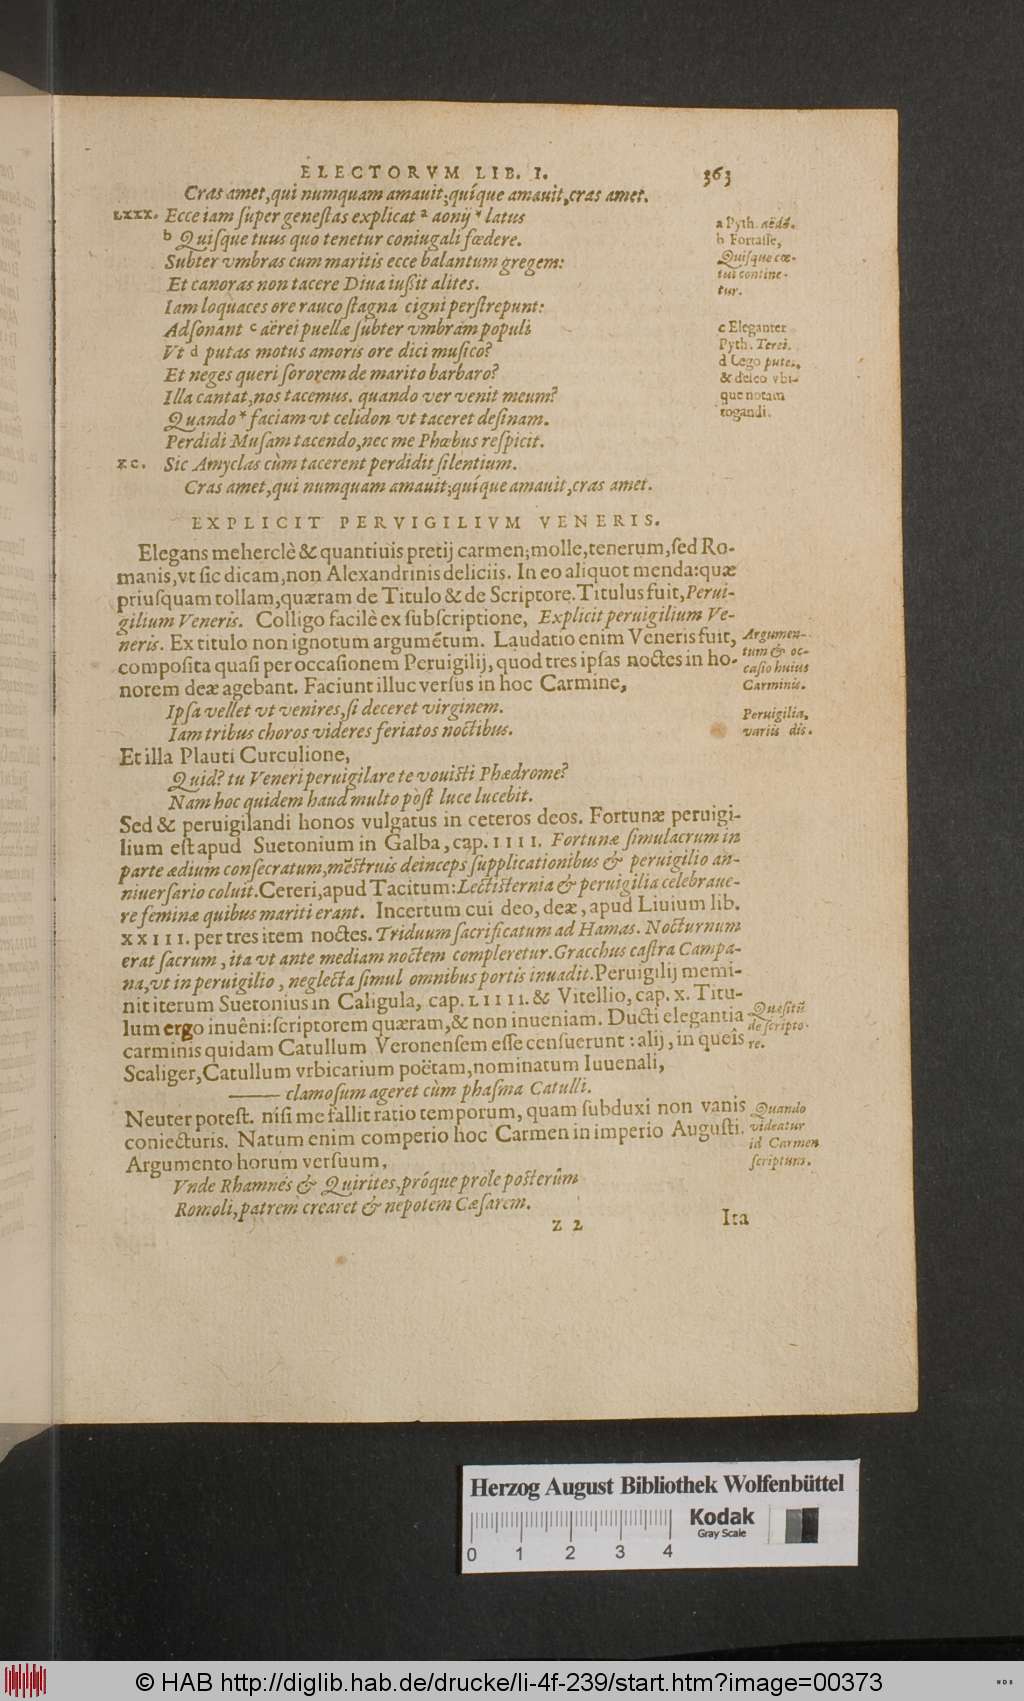 ELECTORVM LIB. I. 363
Cras amet, qui numquam amauit; quíque amauit, cras amet.
LXXX. Ecce iam ſuper geneſtas explicat ᵃ aonij * latus
ᵇ Quiſque tuus quo tenetur coniugali fœdere.
Subter vmbras cum maritis ecce balantum gregem:
Et canoras non tacere Diua iußit alites.
Iam loquaces ore rauco ſtagna cigni perſtrepunt:
Adſonant ᶜ aërei puellæ ſubter vmbram populi
Vt ᵈ putas motus amoris ore dici muſico?
Et neges queri ſororem de marito barbaro?
Illa cantat, nos tacemus. quando ver venit meum?
Quando * faciam vt celidon vt taceret deſinam.
Perdidi Muſam tacendo, nec me Phœbus reſpicit.
XC. Sic Amyclas cùm tacerent perdidit ſilentium.
Cras amet, qui numquam amauit; quíque amauit, cras amet.
a Pyth. aëdō.
b Fortaſſe,
Quiſque cœ-
tui contine-
tur.
c Eleganter
Pyth. Terei.
d Lego pute.,
& deleo vbi-
que notam
rogandi.
EXPLICIT PERVIGILIVM VENERIS.
Elegans meherclè & quantiuis pretij carmen; molle, tenerum, ſed Ro-
manis, vt ſic dicam, non Alexandrinis deliciis. In eo aliquot menda: quæ
priuſquam tollam, quæram de Titulo & de Scriptore. Titulus fuit, Perui-
gilium Veneris. Colligo facilè ex ſubſcriptione, Explicit peruigilium Ve-
neris. Ex titulo non ignotum argumētum. Laudatio enim Veneris fuit,
compoſita quaſi per occaſionem Peruigilij, quod tres ipſas noctes in ho-
norem deæ agebant. Faciunt illuc verſus in hoc Carmine,
Ipſa vellet vt venires, ſi deceret virginem.
Iam tribus choros videres feriatos noctibus.
Et illa Plauti Curculione,
Quid? tu Veneri peruigilare te vouiſti Phædrome?
Nam hoc quidem haud multo pòſt luce lucebit.
Sed & peruigilandi honos vulgatus in ceteros deos. Fortunæ peruigi-
lium eſt apud Suetonium in Galba, cap. IIII. Fortunæ ſimulacrum in
parte ædium conſecratum, mēſtruis deinceps ſupplicationibus & peruigilio an-
niuerſario coluit. Cereri, apud Tacitum: Lectiſternia & peruigilia celebraue-
re feminæ quibus mariti erant. Incertum cui deo, deæ, apud Liuium lib.
XXIII. per tres item noctes. Triduum ſacrificatum ad Hamas. Nocturnum
erat ſacrum, ita vt ante mediam noctem compleretur. Gracchus caſtra Campa-
na, vt in peruigilio, neglecta ſimul omnibus portis inuadit. Peruigilij memi-
nit iterum Suetonius in Caligula, cap. LIIII. & Vitellio, cap. X. Titu-
lum ergo inuêni: ſcriptorem quæram, & non inueniam. Ducti elegantiâ
carminis quidam Catullum Veronenſem eſſe cenſuerunt: alij, in queîs
Scaliger, Catullum vrbicarium poëtam, nominatum Iuuenali,
—— clamoſum ageret cùm phaſma Catulli.
Neuter poteſt. niſi me fallit ratio temporum, quam ſubduxi non vanis
coniecturis. Natum enim comperio hoc Carmen in imperio Auguſti.
Argumento horum verſuum,
Vnde Rhamnes & Quirites, próque prole poſterûm
Romoli, patrem crearet & nepotem Cæſarem.
Argumen-
tum & oc-
caſio huius
Carminis.
Peruigilia,
variis dis.
Queſitū
de ſcripto-
re.
Quando
videatur
id Carmen
ſcriptum.
Z 2 Ita
Herzog August Bibliothek Wolfenbüttel
Kodak
Gray Scale
0 1 2 3 4
© HAB http://diglib.hab.de/drucke/li-4f-239/start.htm?image=00373